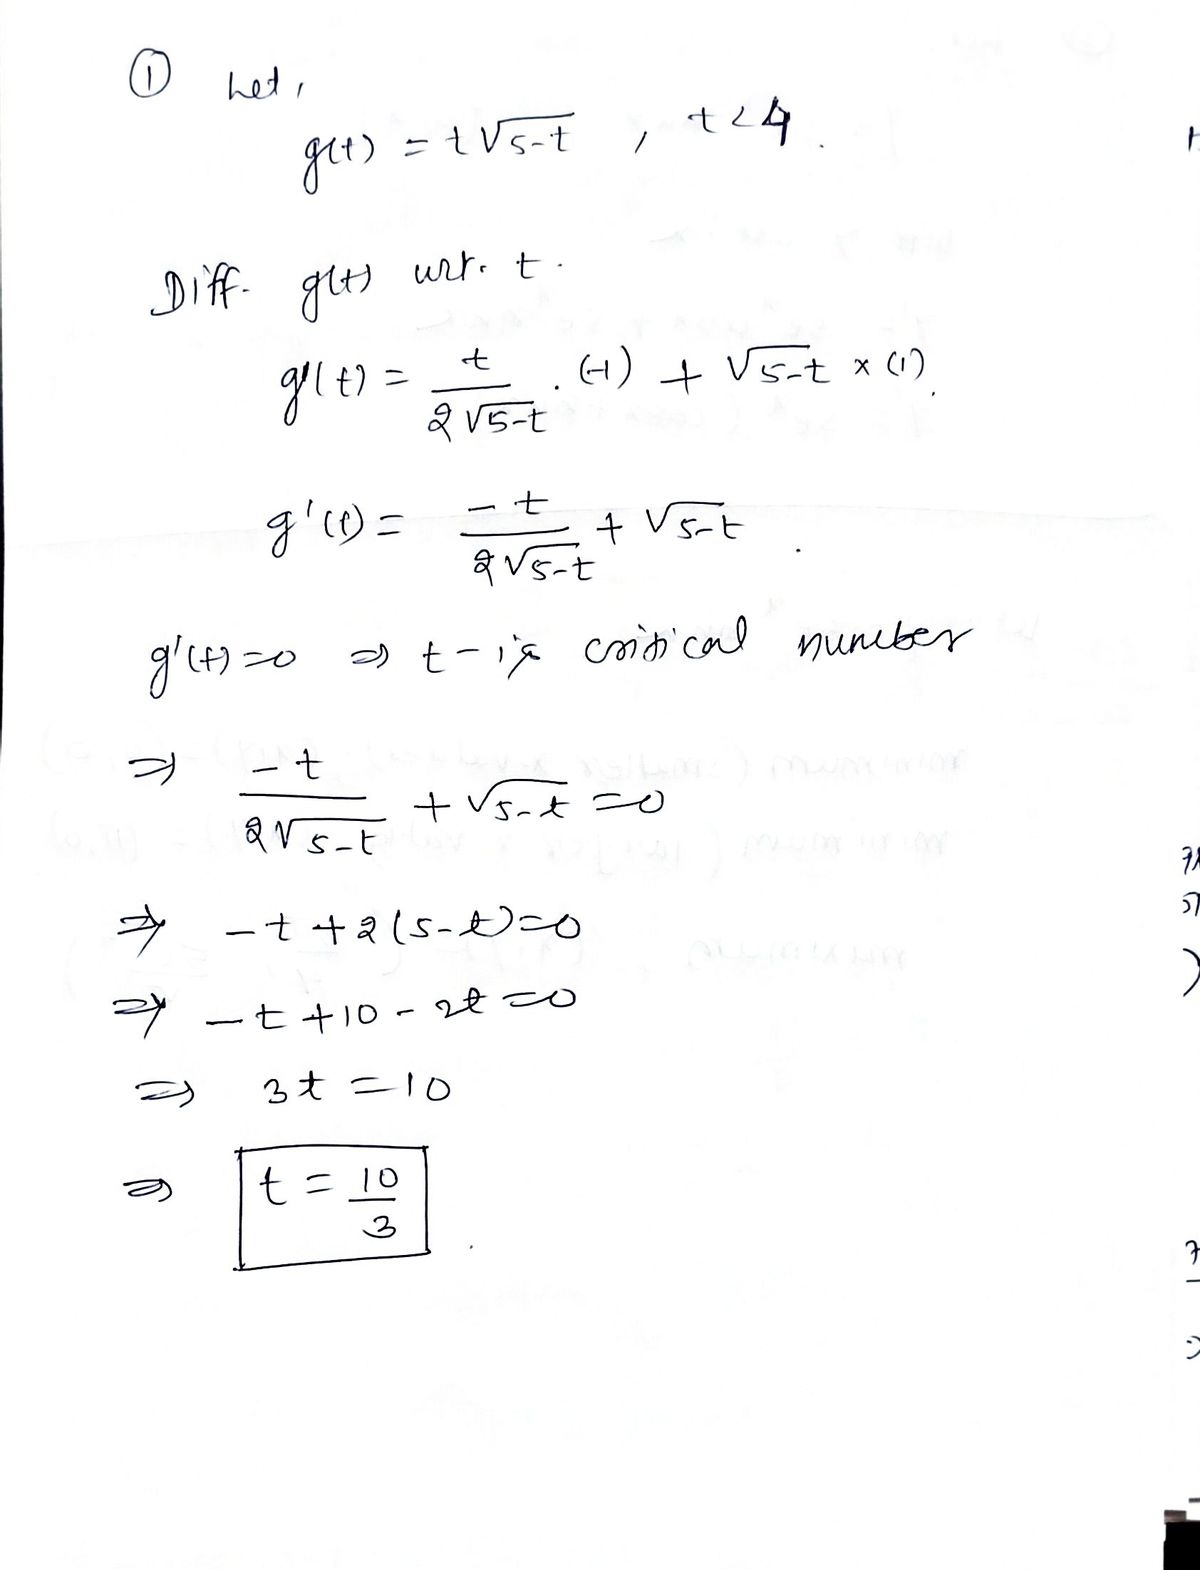 ① Let,
g(t) = t√5-t , t<4.
Diff. g(t) wrt. t.
g'(t) = t/2√5-t . (-1) + √5-t × (1).
g'(t) = -t/2√5-t + √5-t .
g'(t)=0 ⇒ t - is critical number
⇒ -t/2√5-t + √5-t =0
⇒ -t +2(5-t)=0
⇒ -t +10 - 2t =0
⇒ 3t =10
⇒ t = 10/3 .